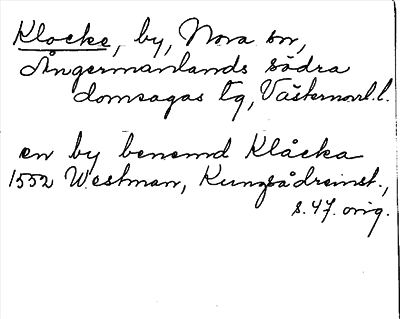 Klocke, by, Nora sn,
Ångermanlands södra
domsagas tg, Västernorrl.l.
en by benemd Klåcka
1552 Westman, Kungsådreinst.,
s. 47. orig.